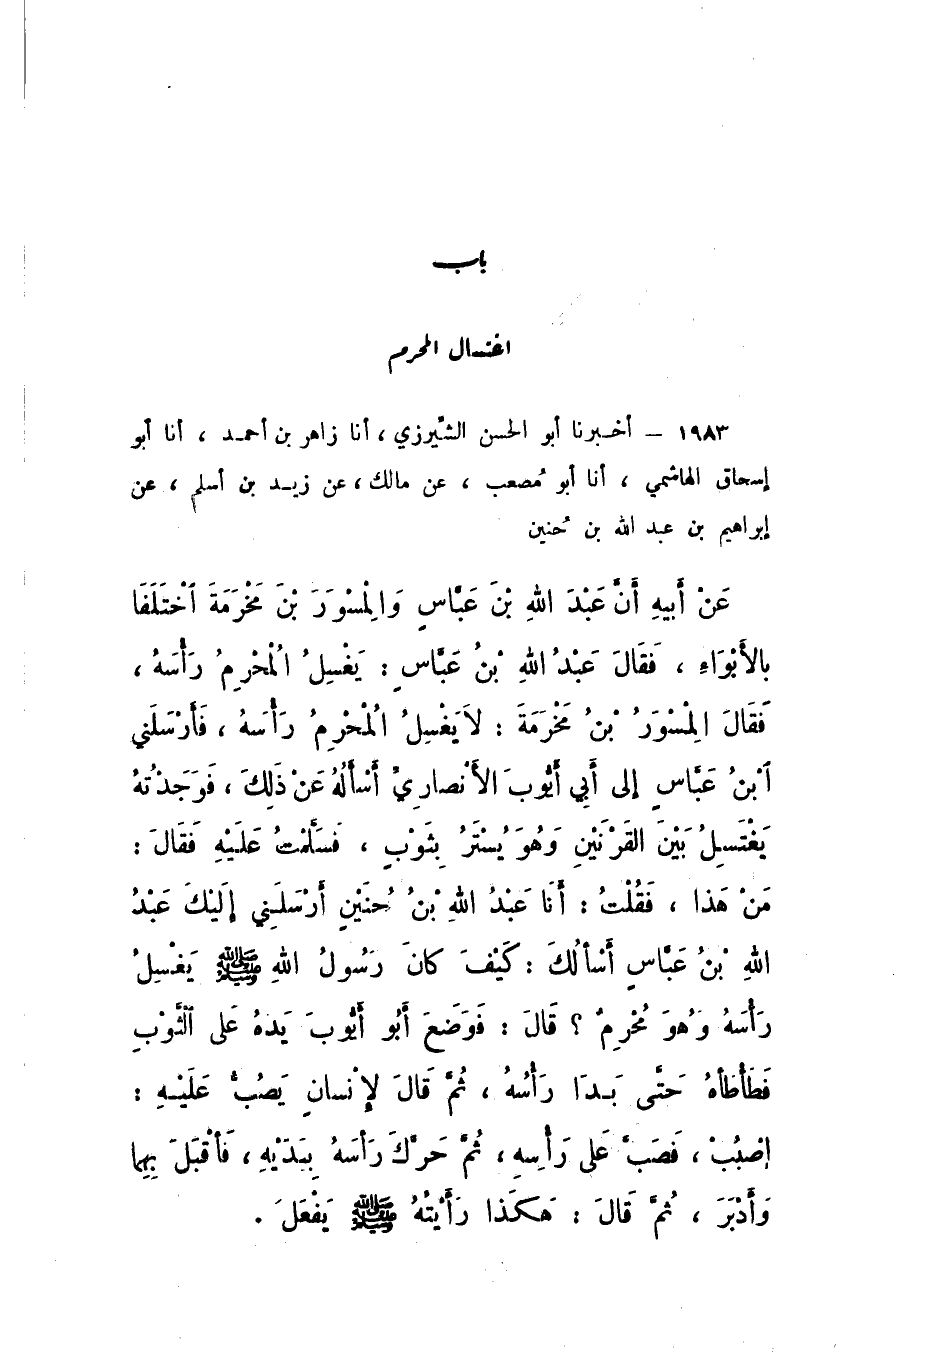 باب
اغتسال المحرم
١٩٨٣ – أخبرنا أبو الحسن الشِّيرزي ، أنا زاهر بن أحمد ، أنا أبو
إسحاق الهاشمي ، أنا أبو مُصعب ، عن مالك ، عن زيد بن أسلم ، عن
إبراهيم بن عبد الله بن حُنين
عَنْ أَبِيهِ أَنَّ عَبْدَ اللهِ بْنَ عَبَّاسٍ وَالْمِسْوَرَ بْنَ مَخْرَمَةَ ٱخْتَلَفَا
بِالأَبْوَاءِ ، فَقَالَ عَبْدُ اللهِ بْنُ عَبَّاسٍ : يَغْسِلُ الْمُحْرِمُ رَأْسَهُ ،
فَقَالَ الْمِسْوَرُ بْنُ مَخْرَمَةَ : لاَ يَغْسِلُ الْمُحْرِمُ رَأْسَهُ ، فَأَرْسَلَنِي
ٱبْنُ عَبَّاسٍ إِلى أَبِي أَيُّوبَ الأَنْصارِيِّ أَسْأَلُهُ عَنْ ذَلِكَ ، فَوَجَدْتُهُ
يَغْتَسِلُ بَيْنَ القَرْنَيْنِ وَهُوَ يُسْتَرُ بِثَوْبٍ ، فَسَلَّمْتُ عَلَيْهِ فَقَالَ :
مَنْ هَذا ، فَقُلْتُ : أَنَا عَبْدُ اللهِ بْنُ حُنَيْنٍ أَرْسَلَنِي إِلَيْكَ عَبْدُ
اللهِ بْنُ عَبَّاسٍ أَسْأَلُكَ : كَيْفَ كَانَ رَسُولُ اللهِ ﷺ يَغْسِلُ
رَأْسَهُ وَهُوَ مُحْرِمٌ ؟ قَالَ : فَوَضَعَ أَبُو أَيُّوبَ يَدَهُ عَلى ٱلثَّوْبِ
فَطَأْطَأَهُ حَتَّى بَدَا رَأْسُهُ ، ثُمَّ قَالَ لِإِنْسانٍ يَصُبُّ عَلَيْهِ :
اصْبُبْ ، فَصَبَّ عَلى رَأْسِهِ ، ثُمَّ حَرَّكَ رَأْسَهُ بِيَدَيْهِ ، فَأَقْبَلَ بِهِمَا
وَأَدْبَرَ ، ثُمَّ قَالَ : هَكَذا رَأَيْتُهُ ﷺ يَفْعَلَ .